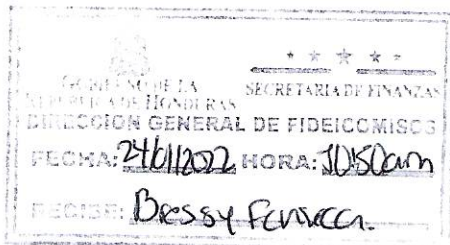 GOBIERNO DE LA
REPÚBLICA DE HONDURAS
SECRETARIA DE FINANZAS
DIRECCION GENERAL DE FIDEICOMISOS
FECHA: 24/01/2022 HORA: 10:50am
RECIBE: Bressy